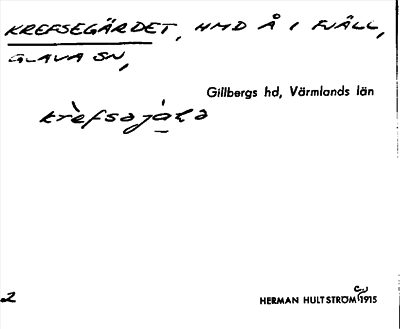 KREFSEGÄRDET, HMD Å I FJÄLL,
GLAVA SN,
Gillbergs hd, Värmlands län
2
HERMAN HULTSTRÖM 1915